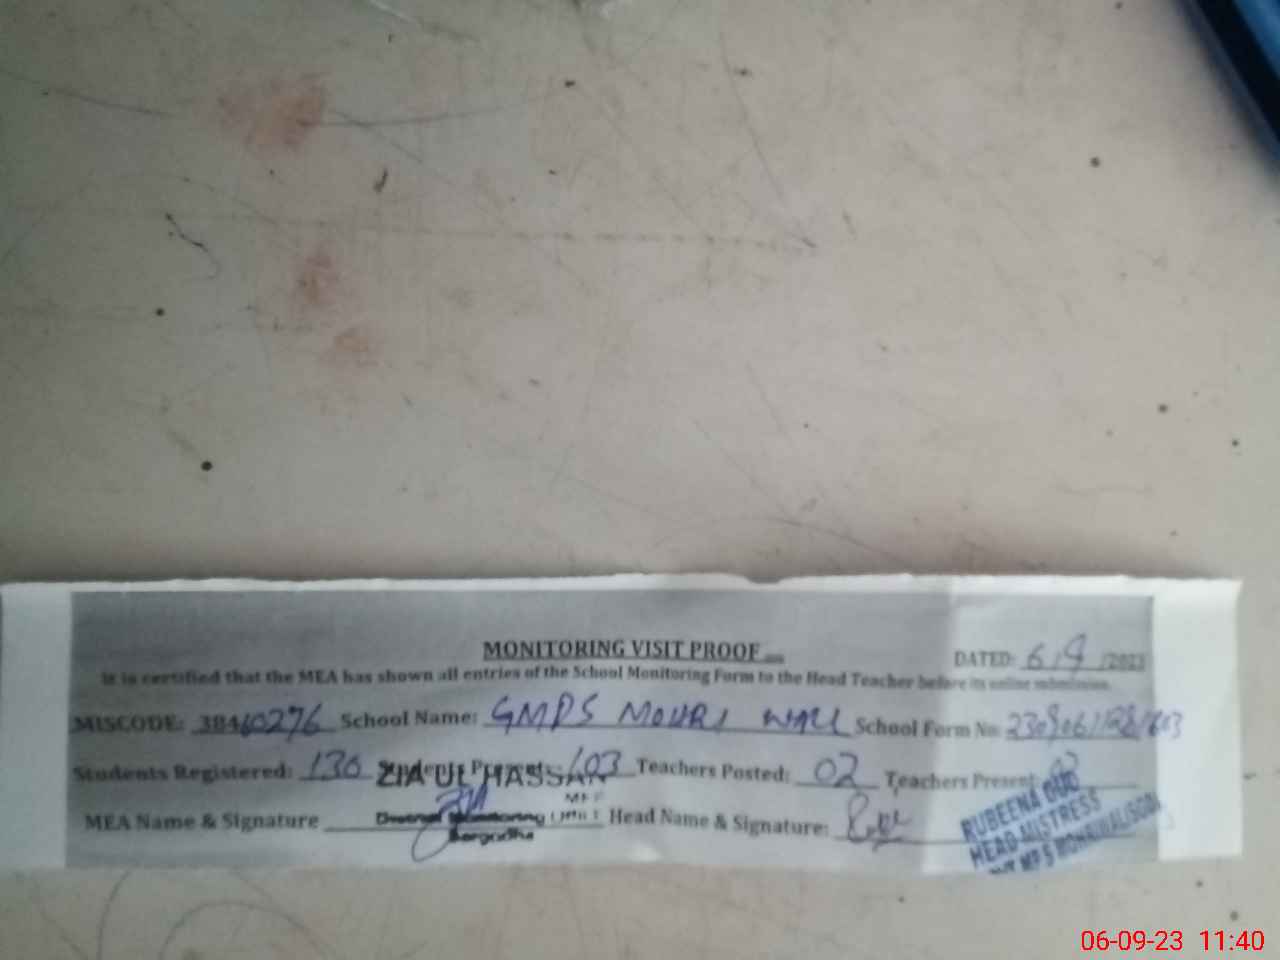 MONITORING VISIT PROOF
DATED: 6/9/2023
It is certified that the MEA has shown all entries of the School Monitoring Form to the Head Teacher before its online submission.
MISCODE: 38410276 School Name: GMPS MOURI WALI School Form No:
Students Registered: 130 Students Present: 103 Teachers Posted: 02 Teachers Present:
ZIA UL HASSAN
MEA Name & Signature Head Name & Signature:
District Monitoring
Sargodha
RUBEENA
HEAD MISTRESS
06-09-23 11:40